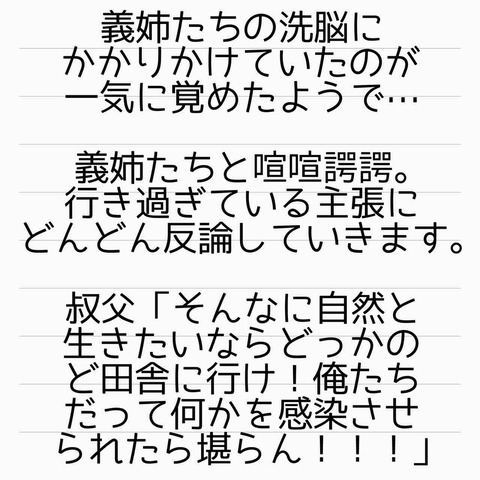 義姉たちの洗脳に
かかりかけていたのが
一気に覚めたようで…
義姉たちと喧喧諤諤。
行き過ぎている主張に
どんどん反論していきます。
叔父「そんなに自然と
生きたいならどっかの
ど田舎に行け！俺たち
だって何かを感染させ
られたら堪らん！！！」